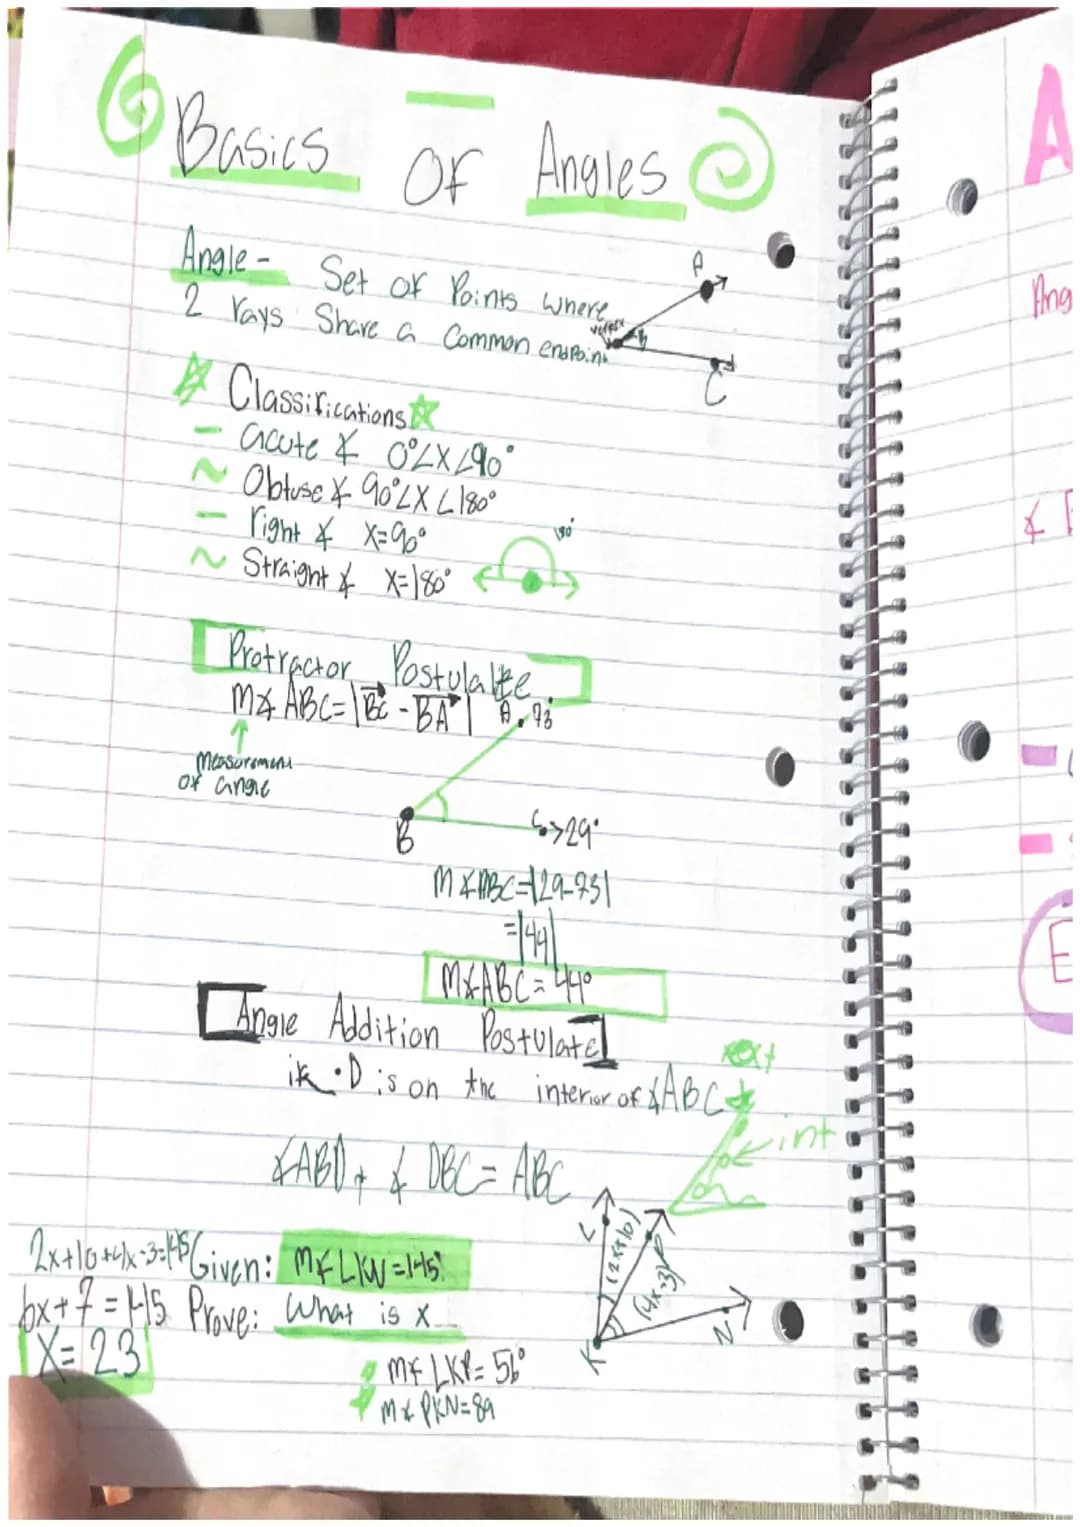 Basics OF Angles
Angle - Set of Points where
2 rays Share a Common endpoint
vertex
A
B
C
Classifications
acute ∡ 0°<X<90°
Obtuse ∡ 90°<X<180°
right ∡ X=90°
Straight ∡ X=180°
180°
Protractor Postulate
M∡ ABC=|BC - BA|
A 73°
measurement
of angle
B
C 29°
M∡ABC=|29-73|
=|44|
M∡ABC= 44°
Angle Addition Postulate
if •D is on the interior of ∡ABC
ext
int
∡ABD + ∡ DBC = ABC
2x+10+4x-3=145 Given: M∡LKN=145°
6x+7=145 Prove: What is x
X=23
L
(2x+10)
P
(4x-3)
N
K
M∡ LKP= 56°
M∡ PKN=89
A
Ang
∡
E